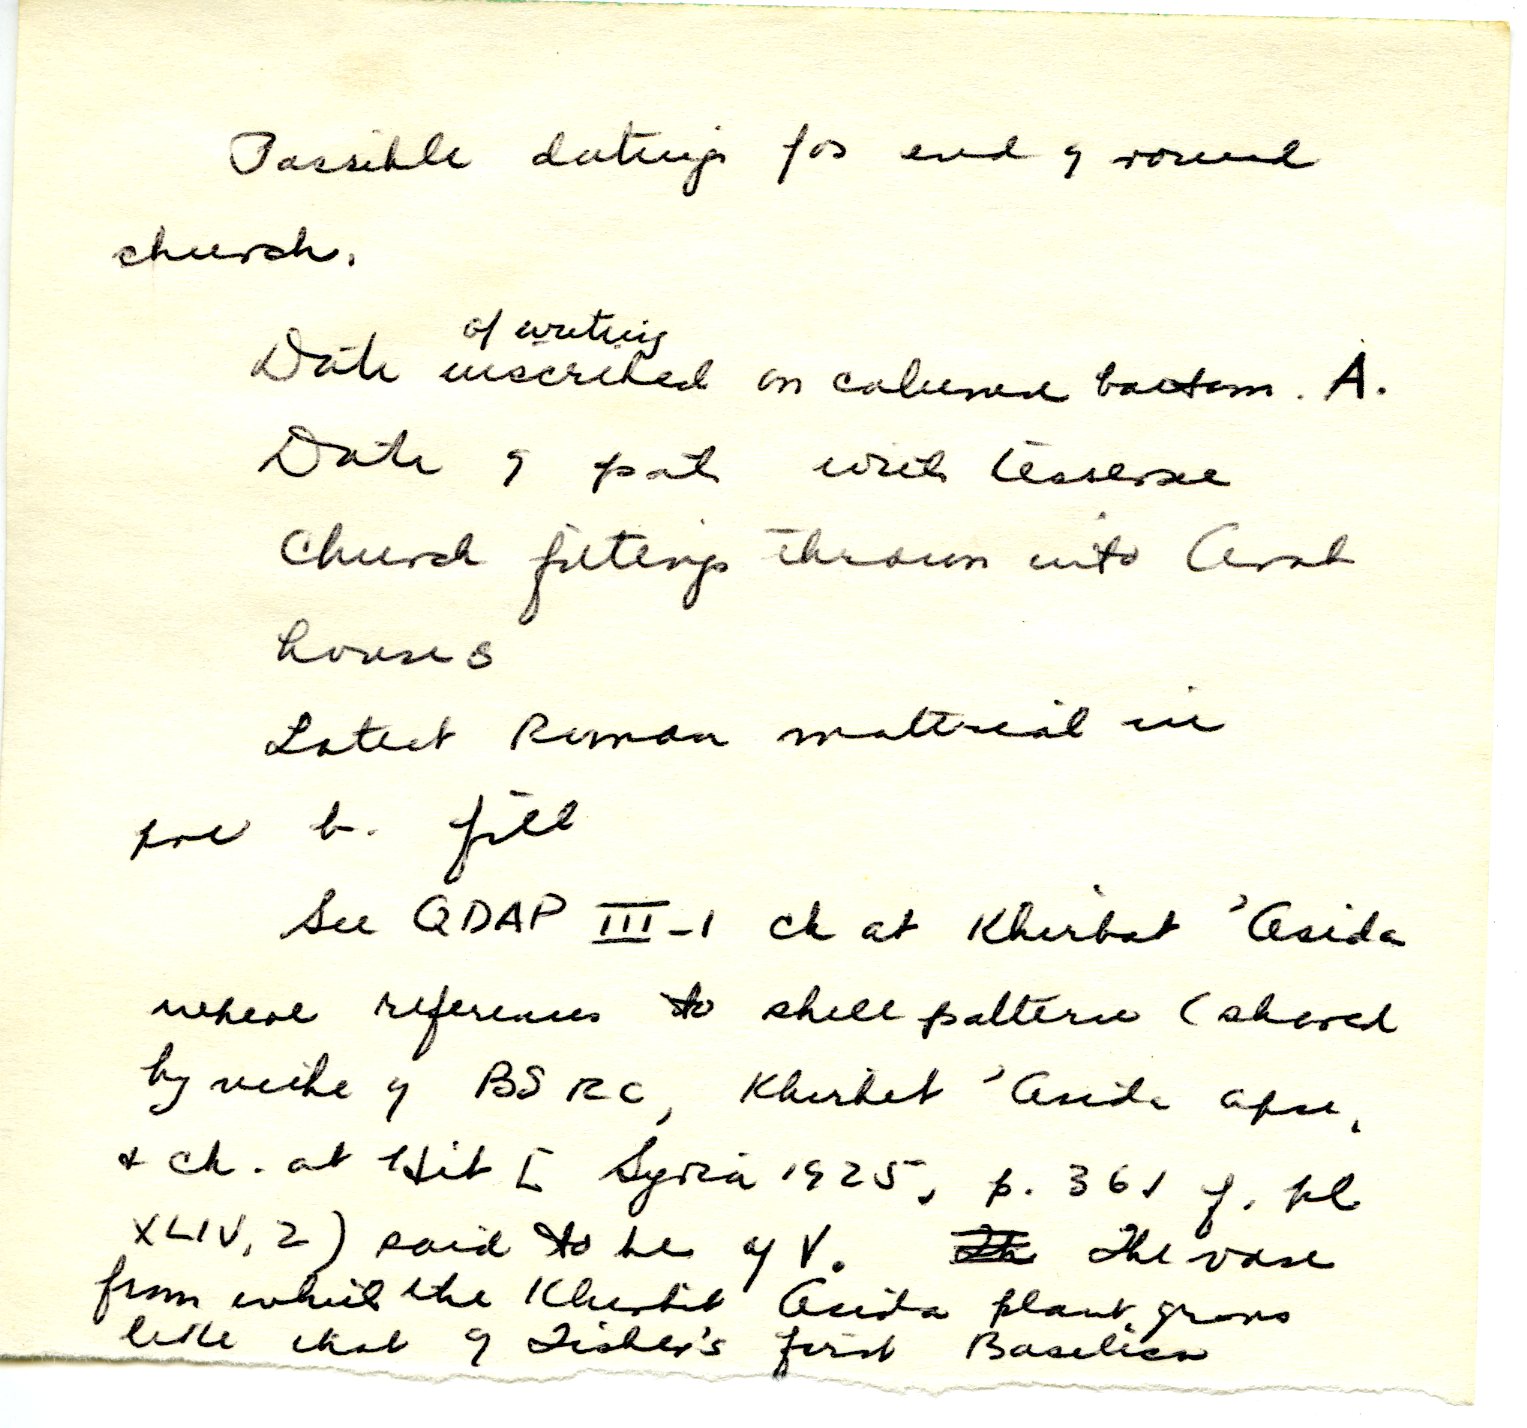 Possible datings for end of round
church.
of writing
Date inscribed on column bottom. A.
Date of pot with tesserae
Church fittings thrown into Arab
houses
Latest Roman material in
pre b. fill
See QDAP III-1 ch at Khirbat 'Asida
where references to shell pattern (shared
by niche of BS RC, Khirbet 'Asida apse,
+ ch. at Hit [ Syria 1925, p. 361 f. pl
XLIV, 2) said to be of V. The vase
from which the Khirbit Asida plant grows
like that of Fisher's first Basilica